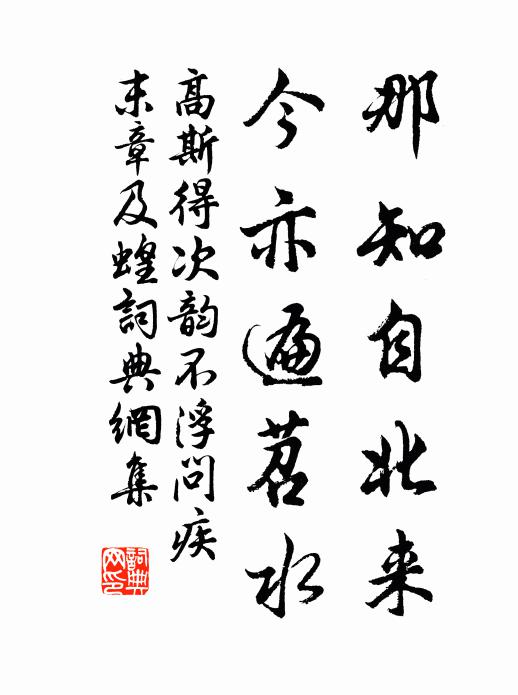 那知自北来
今亦遍苕水
高斯得次韵不浮问疾
末章及蝗詞典網集
詞典网印